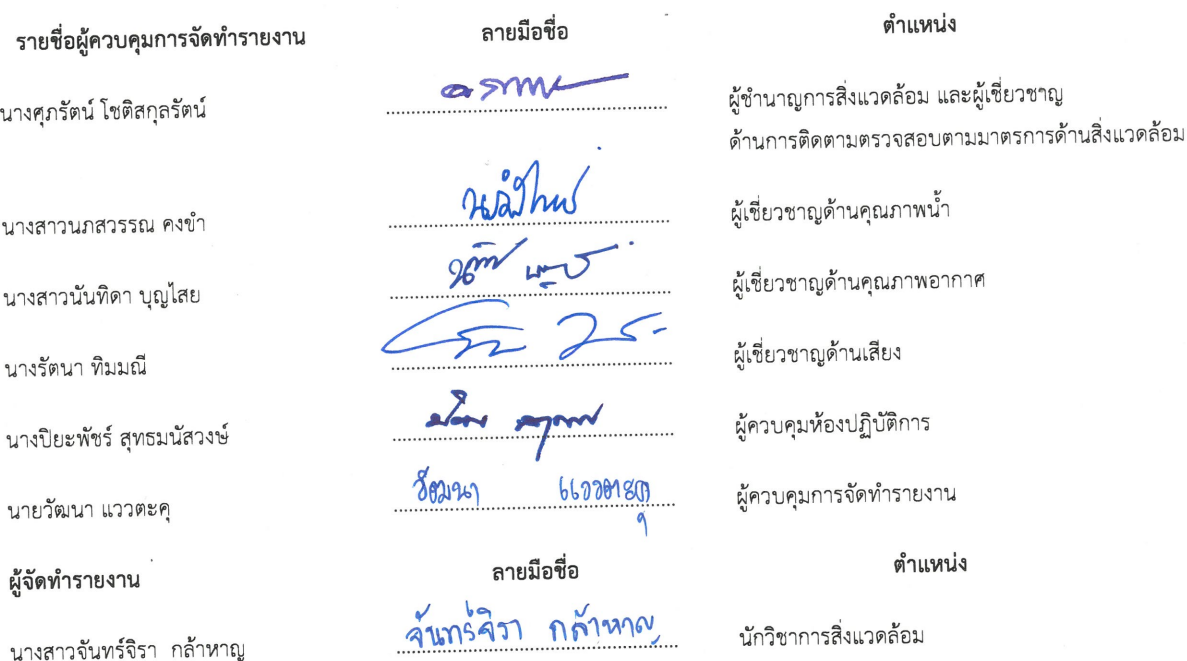 รายชื่อผู้ควบคุมการจัดทำรายงาน ลายมือชื่อ ตำแหน่ง
นางศุภรัตน์ โชติสกุลรัตน์ ผู้ชำนาญการสิ่งแวดล้อม และผู้เชี่ยวชาญ
ด้านการติดตามตรวจสอบตามมาตรการด้านสิ่งแวดล้อม
นางสาวนภสวรรณ คงขำ ผู้เชี่ยวชาญด้านคุณภาพน้ำ
นางสาวนันทิดา บุญไสย ผู้เชี่ยวชาญด้านคุณภาพอากาศ
นางรัตนา ทิมมณี ผู้เชี่ยวชาญด้านเสียง
นางปิยะพัชร์ สุทธมนัสวงษ์ ผู้ควบคุมห้องปฏิบัติการ
นายวัฒนา แววตะคุ วัฒนา แววตะคุ ผู้ควบคุมการจัดทำรายงาน
ผู้จัดทำรายงาน ลายมือชื่อ ตำแหน่ง
นางสาวจันทร์จิรา กล้าหาญ จันทร์จิรา กล้าหาญ นักวิชาการสิ่งแวดล้อม